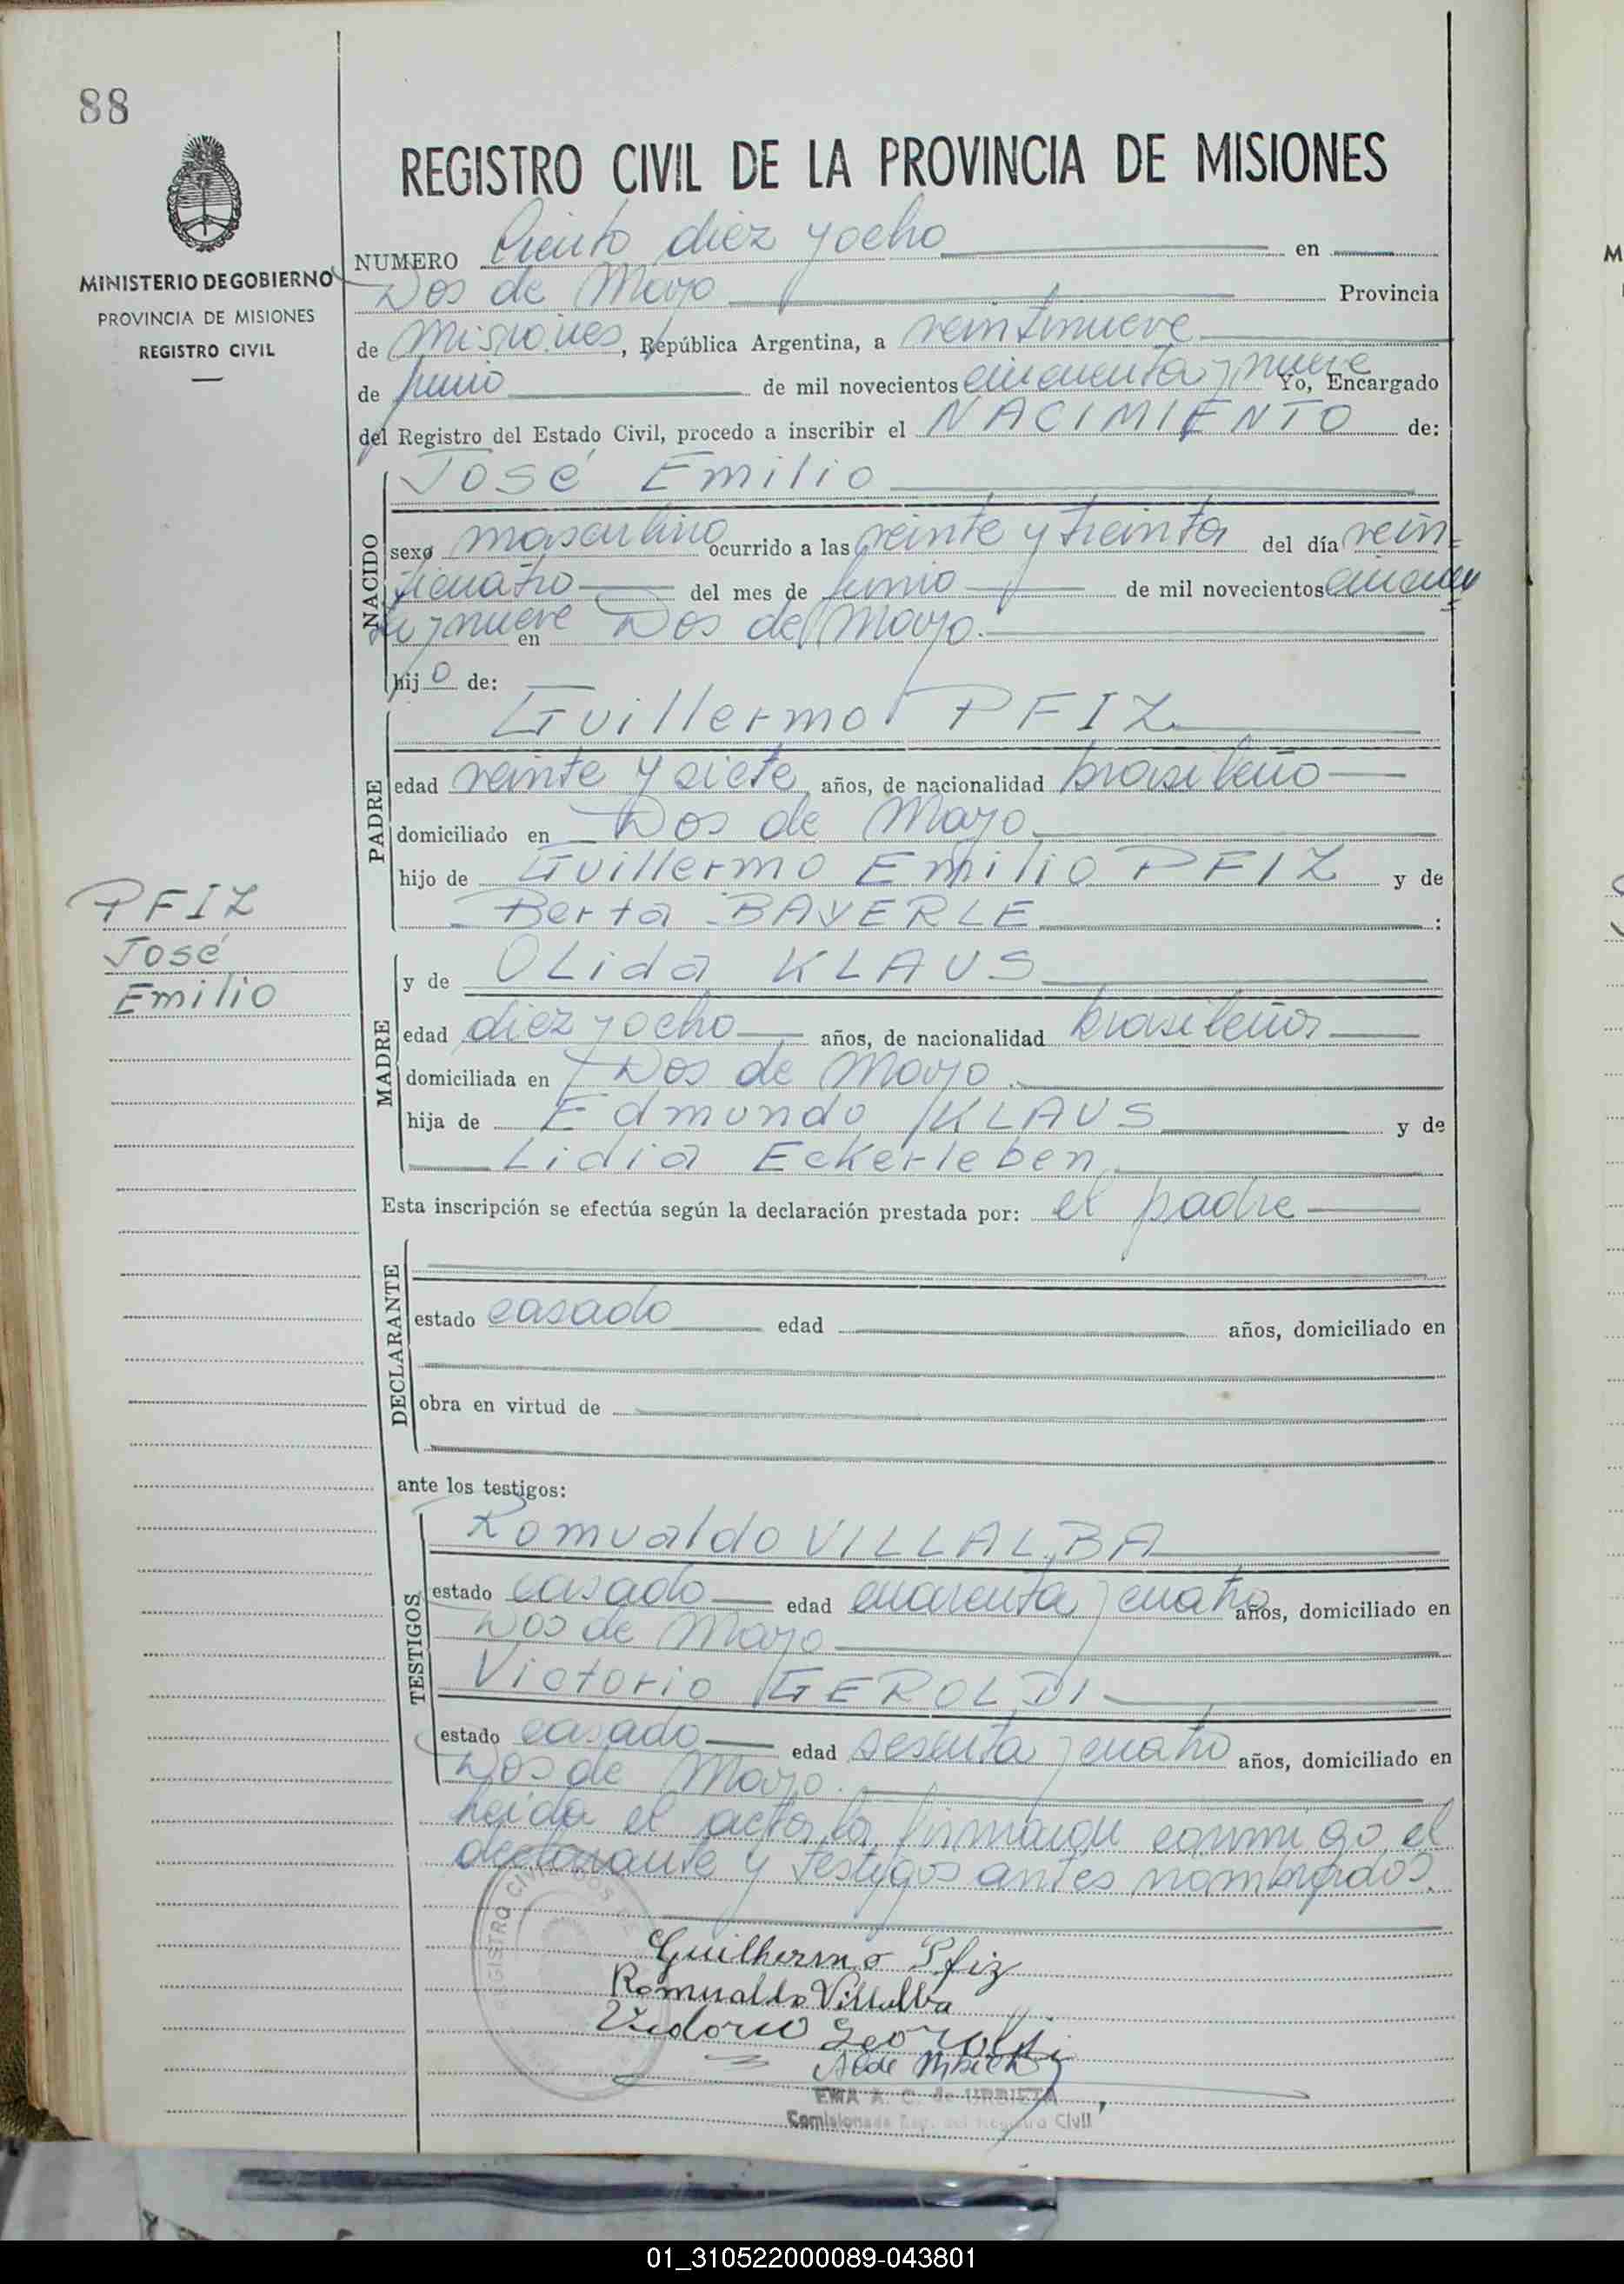 88
MINISTERIO DE GOBIERNO
PROVINCIA DE MISIONES
REGISTRO CIVIL
REGISTRO CIVIL DE LA PROVINCIA DE MISIONES
NUMERO Ciento diez y ocho en
Dos de Mayo Provincia
de Misiones, República Argentina, a veintinueve
de Junio de mil novecientos cincuenta y nueve Yo, Encargado
del Registro del Estado Civil, procedo a inscribir el NACIMIENTO de:
NACIDO
José Emilio
sexo masculino ocurrido a las veinte y treinta del día vein=
ticuatro del mes de Junio de mil novecientos cincuen
ta y nueve en Dos de Mayo.
hijo de:
PADRE
Guillermo PFIZ
edad veinte y siete años, de nacionalidad brasileño
domiciliado en Dos de Mayo
hijo de Guillermo Emilio PFIZ y de
Berta BAYERLE :
PFIZ
José
Emilio
MADRE
y de OLida KLAUS
edad diez y ocho años, de nacionalidad brasileña
domiciliada en Dos de Mayo.
hija de Edmundo KLAUS y de
Lidia Eckerleben
Esta inscripción se efectúa según la declaración prestada por: el padre
DECLARANTE
estado casado edad años, domiciliado en
obra en virtud de
ante los testigos:
TESTIGOS
Romualdo VILLALBA
estado casado edad cuarenta y cuatro años, domiciliado en
Dos de Mayo
Victorio GEROLDI
estado casado edad sesenta y cuatro años, domiciliado en
Dos de Mayo.
Leída el acta la firmaron conmigo el
declarante y testigos antes nombrados.
REGISTRO CIVIL DOS DE
Guilhermo Pfiz
Romualdo Villalba
Victorio
EMA A. C. de URBIETA
Comisionada Reg. del Registro Civil
01_310522000089-043801